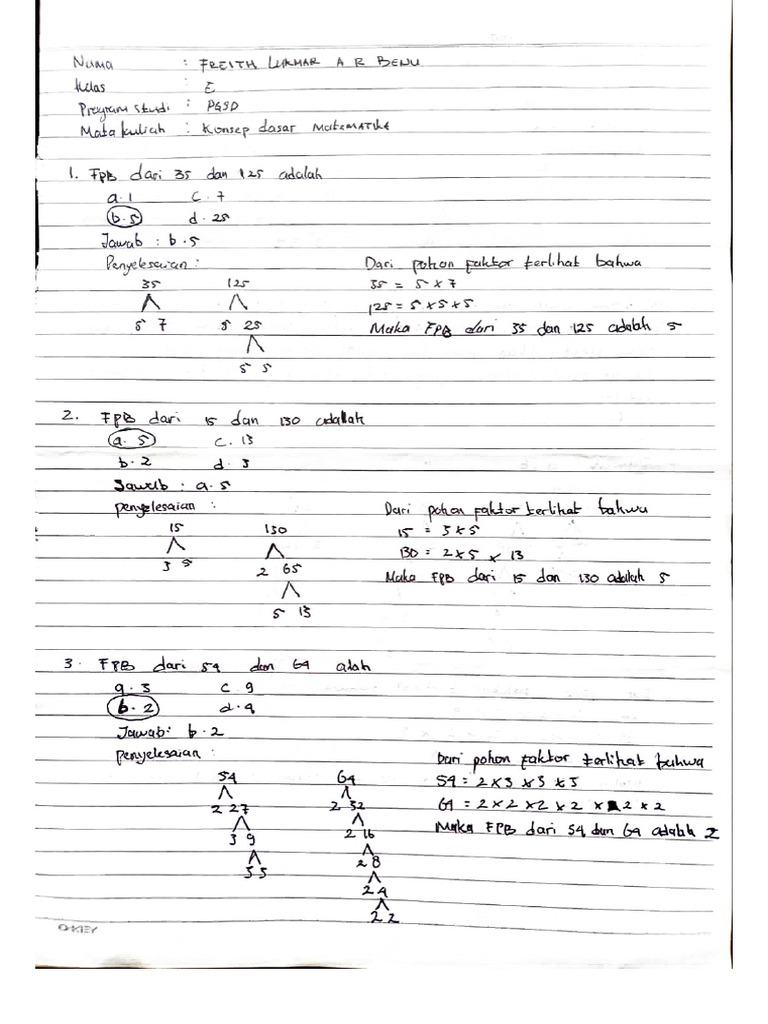 Nama : FREITH LUKMAR A R BENU
Kelas : E
Program studi : PGSD
Mata kuliah : Konsep dasar MATEMATIKA
1. FPB dari 35 dan 125 adalah
a. 1 c. 7
b. 5 d. 25
Jawab : b. 5
Penyelesaian :
35 125
5 7 5 25
5 5
Dari pohon faktor terlihat bahwa
35 = 5 x 7
125 = 5 x 5 x 5
Maka FPB dari 35 dan 125 adalah 5
2. FPB dari 15 dan 130 adalah
a. 5 c. 13
b. 2 d. 3
Jawab : a. 5
penyelesaian :
15 130
3 5 2 65
5 13
Dari pohon faktor terlihat bahwa
15 = 3 x 5
130 = 2 x 5 x 13
Maka FPB dari 15 dan 130 adalah 5
3. FPB dari 54 dan 64 alah
a. 3 c. 9
b. 2 d. 4
Jawab: b. 2
penyelesaian :
54 64
2 27 2 32
3 9 2 16
3 3 2 8
2 4
2 2
Dari pohon faktor terlihat bahwa
54 = 2 x 3 x 3 x 3
64 = 2 x 2 x 2 x 2 x 2 x 2
Maka FPB dari 54 dan 64 adalah 2